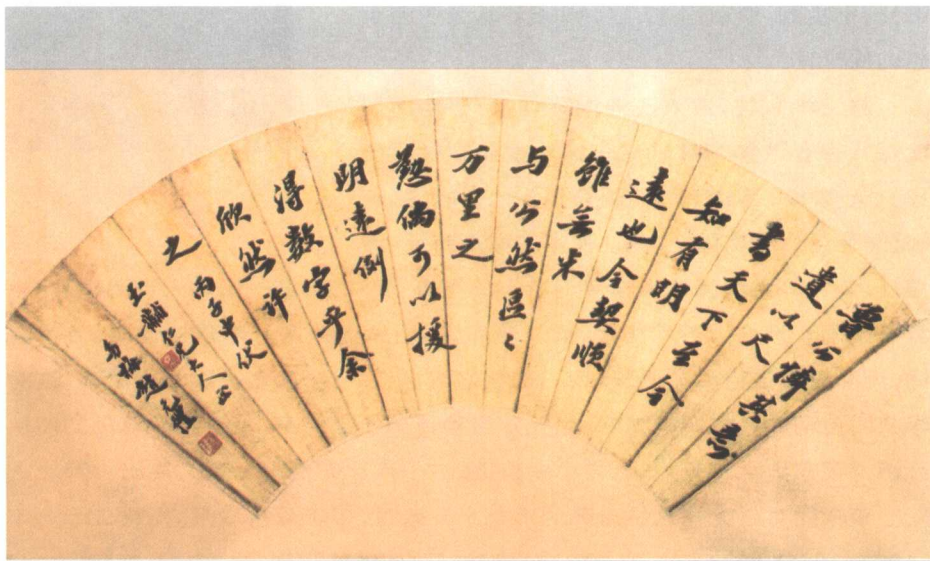 魯公憐其意
遺以尺
書天下至今
知有明
遠也今契順
雖無米
与公然區〻
万里之
懃倘可以援
明遠例
得數字乎余
欣然許
之
丙子中伏
玉黼仁兄大人正
趙